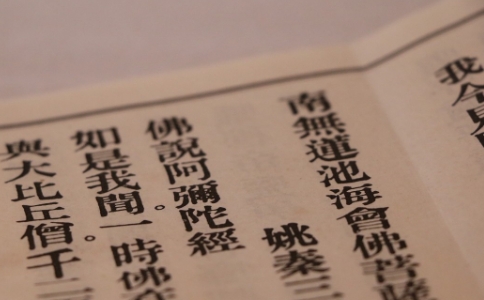 我今見
南無蓮池海會佛菩薩
姚秦三
佛說阿彌陀經
如是我聞。一時佛在
與大比丘僧千二